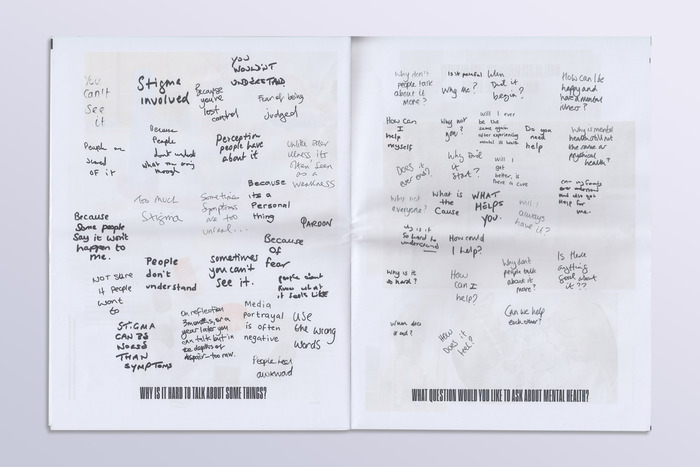 You
can't
See
it
Stigma
involved
YOU
WOULDN'T
UNDERSTAND
Because
you've
lost
control
Fear of being
judged
Because
People
don't understand
what
through
People
scared
of it
Perception
people have
about it
Unlike other
illness it's
often seen
as a
weakness
Too much
Stigma
Sometimes
Symptoms
are too
unreal...
Because
its a
Personal
thing
PARDON
Because
Some people
Say it won't
happen to
me.
Because
OF
fear
NOT SURE
if people
want
to
People
don't
understand
sometimes
you can't
see it.
people don't
know what
it feels LIKE
STIGMA
CAN BE
WORSE
THAN
SYMPTOMS
On reflection
3 months, or a
year later you
can talk but in
the depths of
despair - too raw.
Media
portrayal
is often
negative
USE
the wrong
words
People feel
awkward
WHY IS IT HARD TO TALK ABOUT SOME THINGS?
Why don't
people talk
about it
more?
Is it painful
Why me?
When
Did it
begin?
How can I be
happy and
have a mental
illness?
How can
I
help
myself
Why not
you?
will I ever
be the
same again
after experiencing
mental ill health
Do you
need
help
Why is mental
health still not
the same as
physical
health?
DOES it
ever end?
Why did
it
start?
Will I
get
better, is
there a cure
can my family
also get
Help for
me.
Why not
everyone?
What is
the
Cause
WHAT
HELPS
YOU.
Will I
always
have it?
why is it
so hard to
understand
How could
I help?
Why is it
so hard?
How
can I
help?
Why don't
people talk
about it
more?
Is there
anything
good about
it??
Can we help
each other?
When does
it end?
HOW
DOES it
feel?
WHAT QUESTION WOULD YOU LIKE TO ASK ABOUT MENTAL HEALTH?